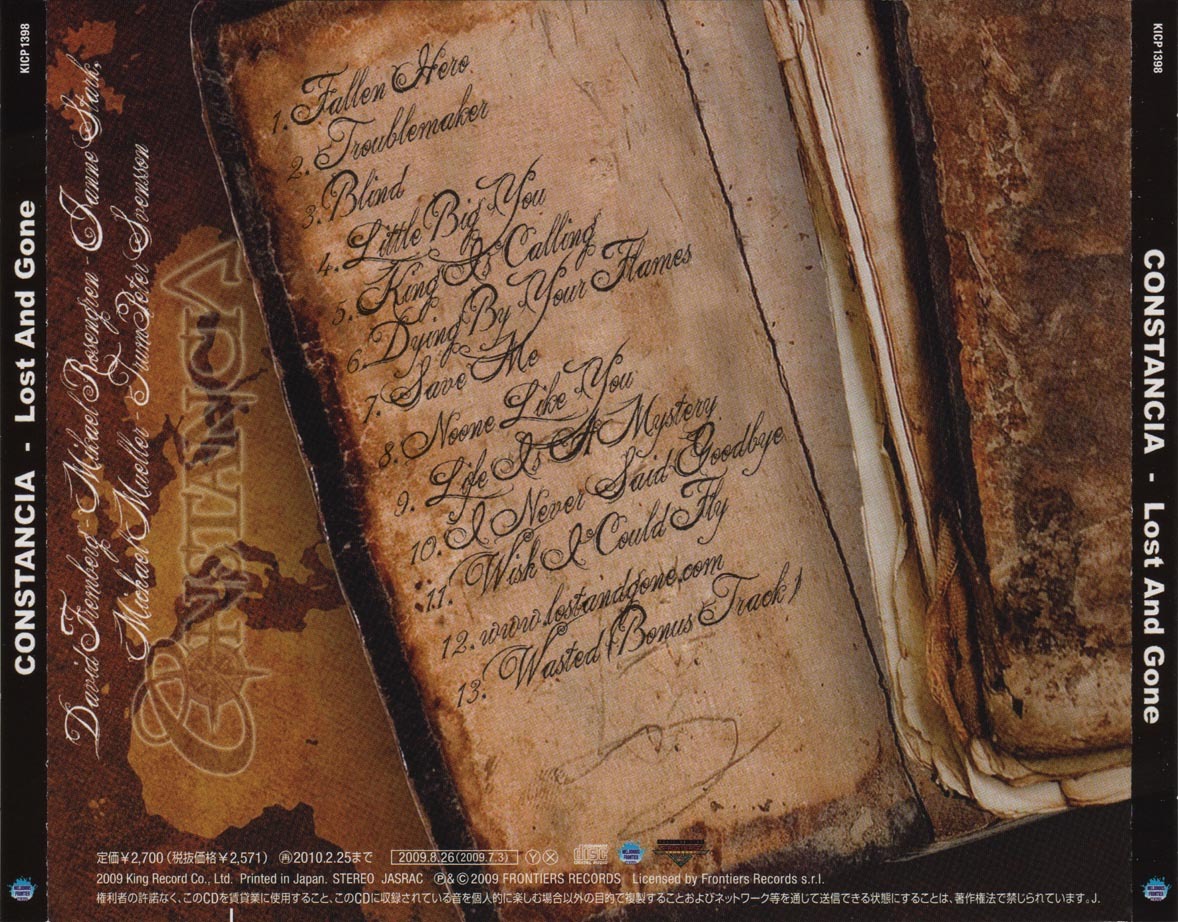 KICP1398
CONSTANCIA - Lost And Gone
David Fremberg - Mikael Rosengren - Janne Stark,
Michael Mueller - Trum Peter Svensson
CONSTANCIA
1. Fallen Hero
2. Troublemaker
3. Blind
4. Little Big You
5. King Is Calling
6. Dying By Your Flames
7. Save Me
8. Noone Like You
9. Life Is A Mystery
10. I Never Said Goodbye
11. Wish I Could Fly
12. www.lostandgone.com
13. Wasted (Bonus Track)
定価¥2,700 (税抜価格¥2,571) ㊢2010.2.25まで 2009.8.26(2009.7.3) Ⓨ Ⓧ disc
2009 King Record Co., Ltd. Printed in Japan. STEREO JASRAC ℗&©2009 FRONTIERS RECORDS Licensed by Frontiers Records s.r.l.
権利者の許諾なく、このCDを賃貸業に使用すること、このCDに収録されている音を個人的に楽しむ場合以外の目的で複製することおよびネットワーク等を通じて送信できる状態にすることは、著作権法で禁じられています。J.
KICP1398
CONSTANCIA - Lost And Gone